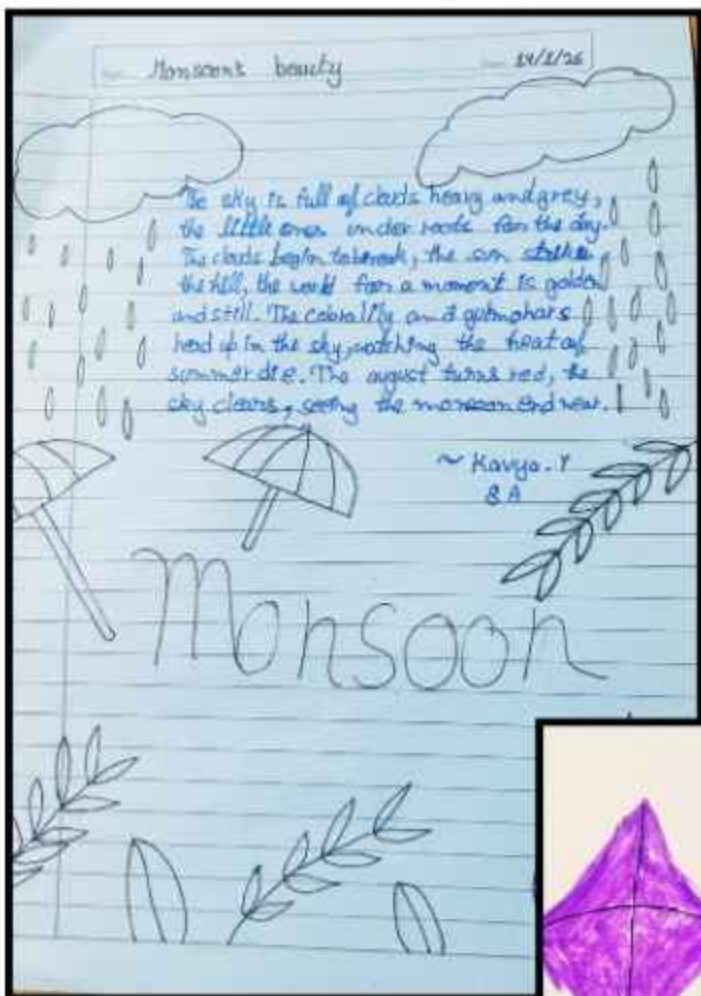 Monsoon's beauty
14/1/26
The sky is full of clouds heavy and grey,
the little ones under roofs for the day.
The clouds begin to break, the sun strikes
the hill, the world for a moment is golden
and still. The cobra lily and gulmohars
head up in the sky, watching the heat of
summer die. The august turns red, the
sky clears, seeing the monsoon end near.
~ Kavya. Y
8 A
Monsoon